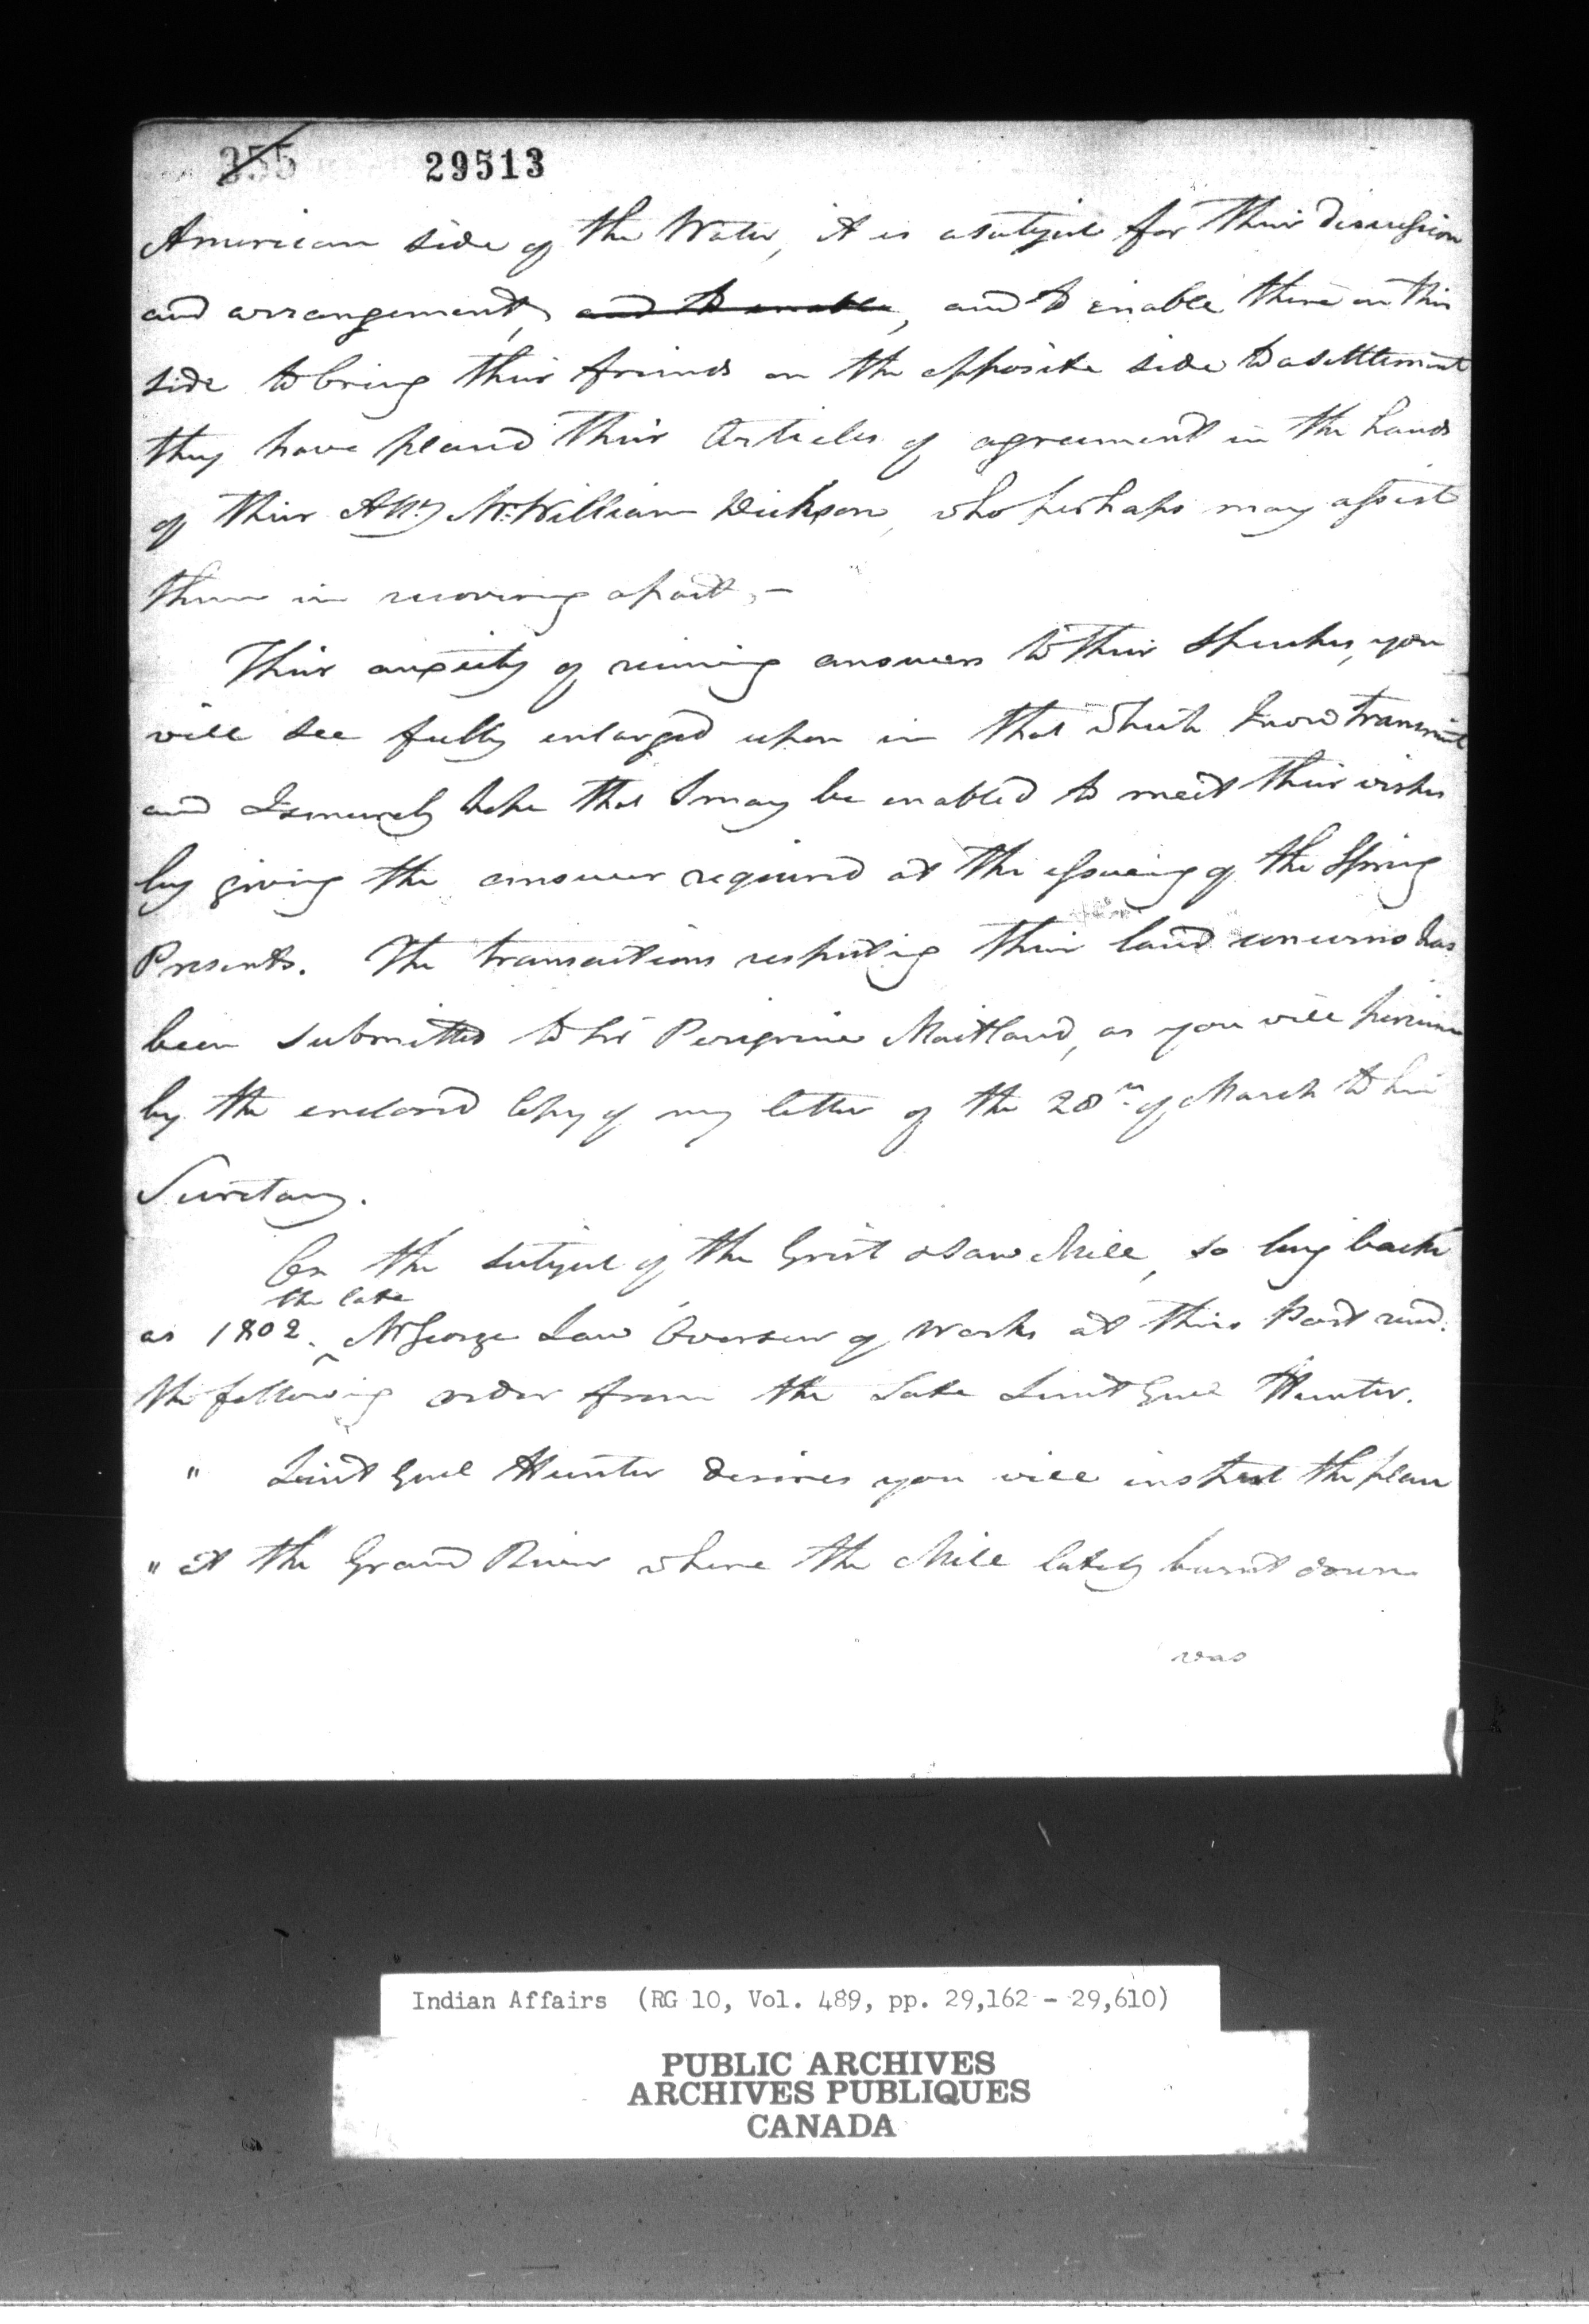 355 29513
American side of the Water, it is a subject for their discussion
and arrangement, and to enable, and to enable those on this
side to bring their friends on the opposite side to a settlement
they have placed their Articles of agreement in the hands
of their Atty Mr. William Dickson, who perhaps may assist
them in recovering a part, –
Their anxiety of receiving answers to their Speeches, you
will see fully enlarged upon in that which I now transmit
and I sincerely hope that I may be enabled to meet their wishes
by giving the answer required at the issueing of the Spring
Presents. The transactions respecting their land concerns has
been submitted to Sir Peregrine Maitland, as you will perceive
by the enclosed Copy of my letter of the 28th of March to his
Secretary.
On the subject of the Grist & Saw Mill, so long back
the late
as 1802. Mr George Law Overseer of Works at this Post recd.
the following order from the Late Lieut Genl Hunter.
" Lieut Genl Hunter desires you will inspect the place
" at the Grand River where the Mill lately burnt down
was
Indian Affairs (RG 10, Vol. 489, pp. 29,162 - 29,610)
PUBLIC ARCHIVES
ARCHIVES PUBLIQUES
CANADA